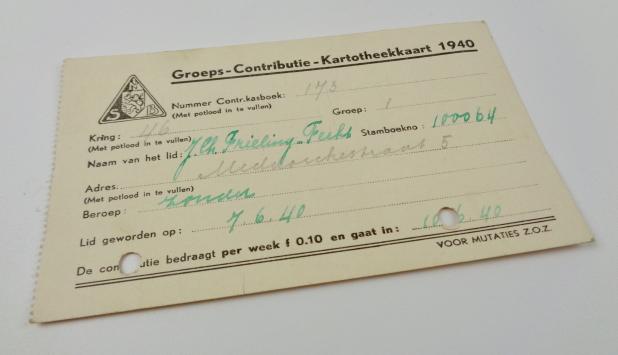 Groeps-Contributie-Kartotheekkaart 1940
N
S B
Nummer Contr.kasboek: 173
(Met potlood in te vullen)
Kring: 46 Groep: 1
(Met potlood in te vullen)
Naam van het lid: J.Ch. Frieling- Stamboekno: 100064
Adres: 5
(Met potlood in te vullen)
Beroep: zonder
Lid geworden op: 7.6.40
De con utie bedraagt per week f 0.10 en gaat in: 10.6.40
VOOR MUTATIES Z.O.Z.